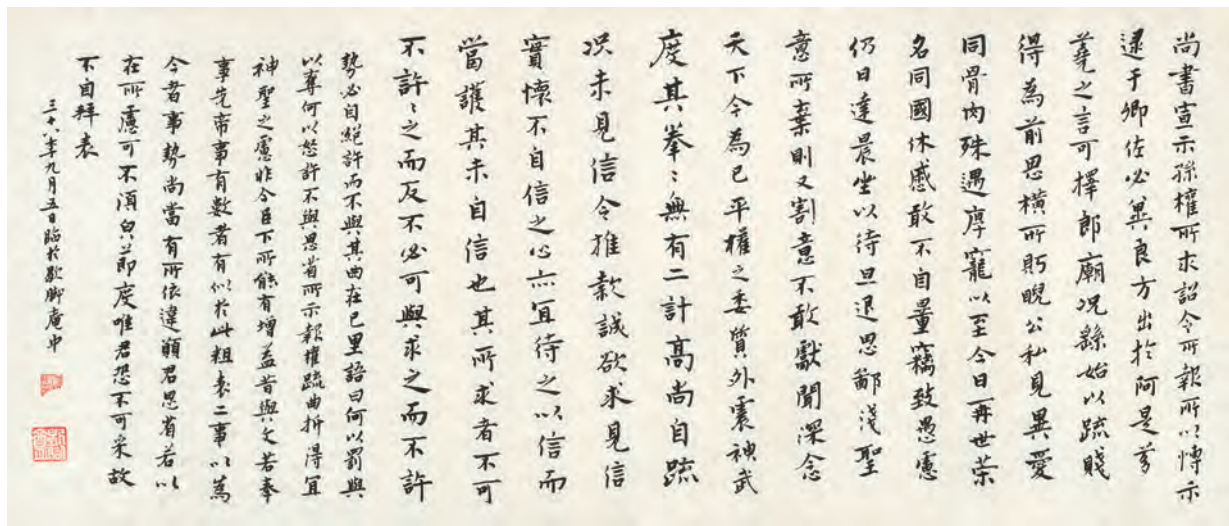 尚書宣示孫權所求詔令所報所以博示
逮于卿佐必冀良方出於阿是芻
蕘之言可擇郎廟況繇始以疏賤
得為前恩橫所眄睨公私見異愛
同骨肉殊遇厚寵以至今日再世榮
名同國休慼敢不自量竊致愚慮
仍日達晨坐以待旦退思鄙淺聖
意所棄則又割意不敢獻聞深念
天下今為已平權之委質外震神武
度其拳〻無有二計高尚自疏
況未見信今推款誠欲求見信
實懷不自信之心亦宜待之以信而
當護其未自信也其所求者不可
不許〻之而反不必可與求之而不許
勢必自絕許而不與其曲在己里語曰何以罰與
以奪何以怒許不與思省所示報權疏曲折得宜
神聖之慮非今臣下所能有增益昔與文若奉
事先帝事有數者有似於此粗表二事以為
今者事勢尚當有所依違願君思省若以
在所慮可不須節度唯君恐不可采故
不自拜表
三十八年九月五日臨於歇腳庵中